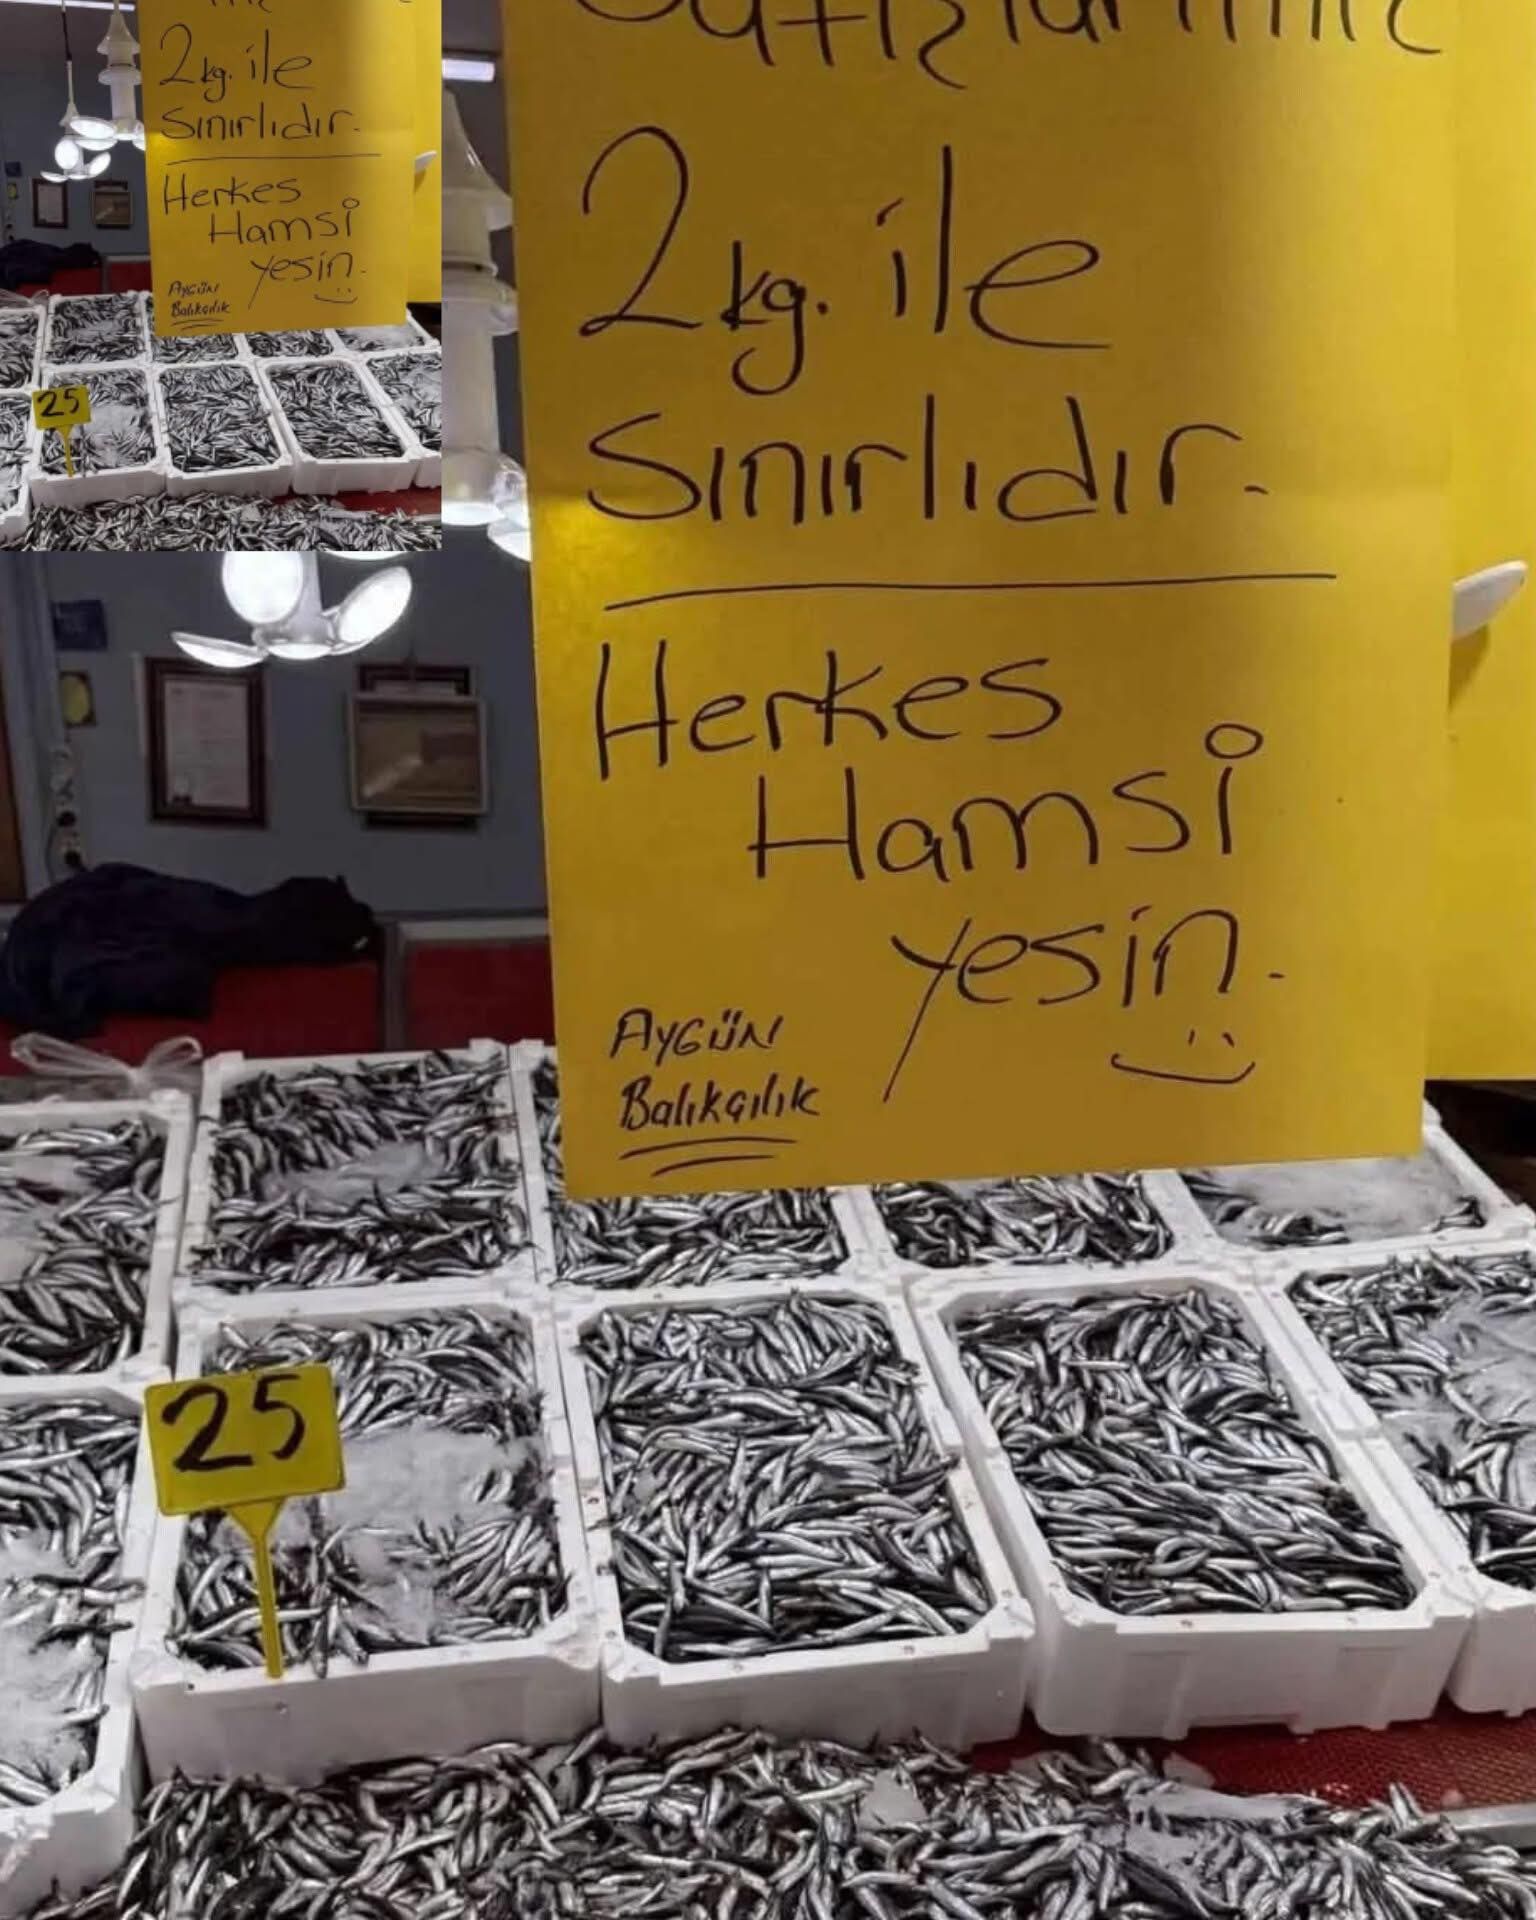 Satışlarımız
2kg. ile
Sınırlıdır.
Herkes
Hamsi
yesin.
AYGÜN
Balıkçılık
25
2kg. ile
Sınırlıdır.
Herkes
Hamsi
yesin.
AYGÜN
Balıkçılık
25